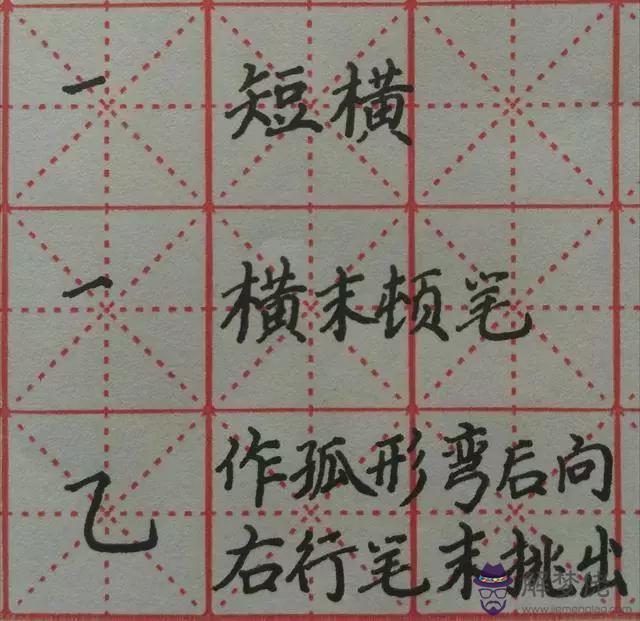 一 短横
一 横末顿笔
乙 作孤形弯后向
右行笔末挑出
解梦佬
www.jiemenglao.com